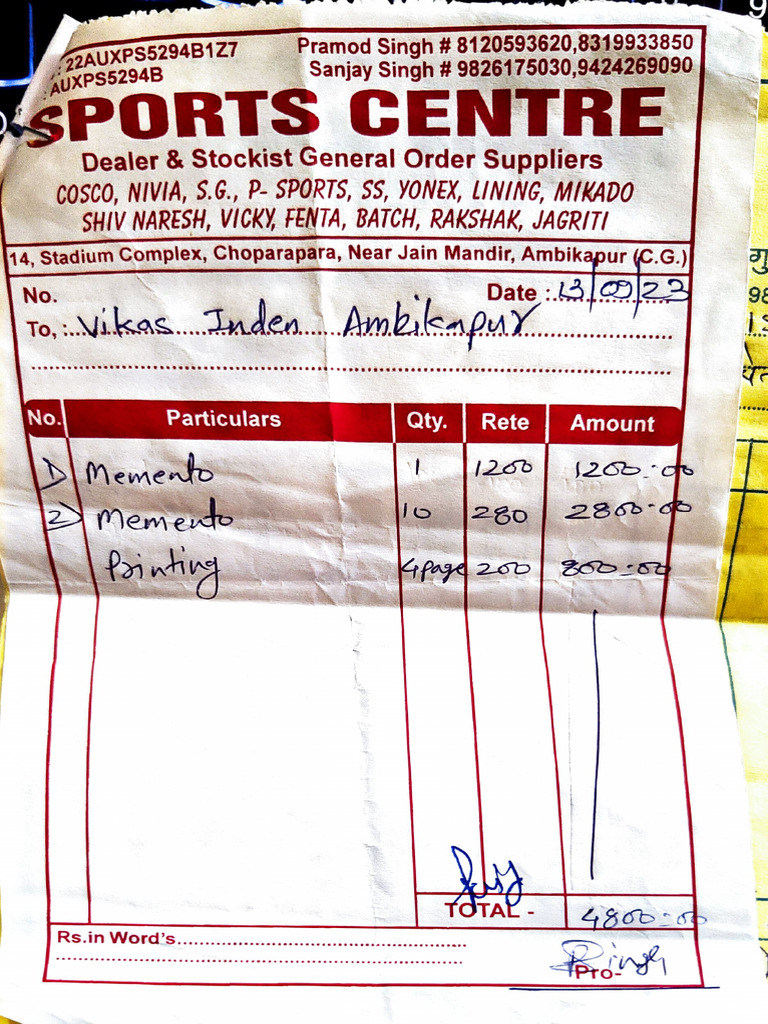 : 22AUXPS5294B1Z7 Pramod Singh # 8120593620,8319933850
AUXPS5294B Sanjay Singh # 9826175030,9424269090
SPORTS CENTRE
Dealer & Stockist General Order Suppliers
COSCO, NIVIA, S.G., P- SPORTS, SS, YONEX, LINING, MIKADO
SHIV NARESH, VICKY, FENTA, BATCH, RAKSHAK, JAGRITI
14, Stadium Complex, Choparapara, Near Jain Mandir, Ambikapur (C.G.)
No. Date : 13/09/23
To, : Vikas Inden Ambikapur
No. Particulars Qty. Rete Amount
1) Memento 1 1200 1200:00
2) Memento 10 280 2800:00
Printing 4page 200 800:00
TOTAL - 4800:00
Rs.in Word's
Singh
Pro-